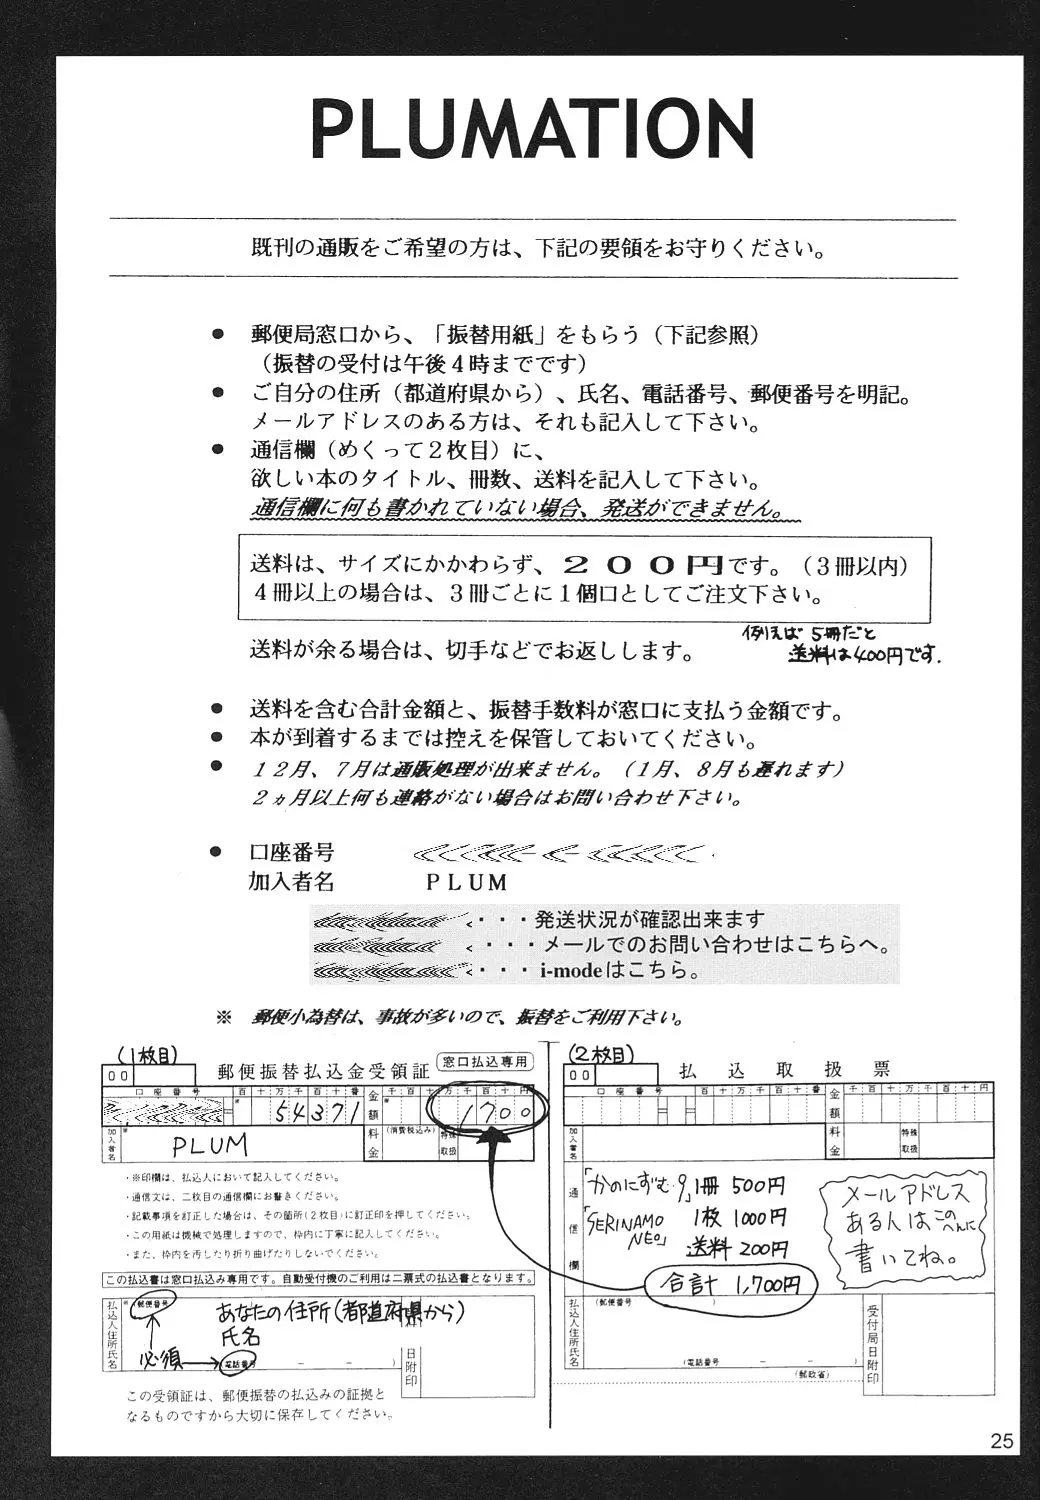 PLUMATION
既刊の通販をご希望の方は、下記の要領をお守りください。
● 郵便局窓口から、「振替用紙」をもらう（下記参照）
（振替の受付は午後4時までです）
● ご自分の住所（都道府県から）、氏名、電話番号、郵便番号を明記。
メールアドレスのある方は、それも記入して下さい。
● 通信欄（めくって2枚目）に、
欲しい本のタイトル、冊数、送料を記入して下さい。
通信欄に何も書かれていない場合、発送ができません。
送料は、サイズにかかわらず、200円です。（3冊以内）
4冊以上の場合は、3冊ごとに1個口としてご注文下さい。
例えば 5冊だと
送料は400円です.
送料が余る場合は、切手などでお返しします。
● 送料を含む合計金額と、振替手数料が窓口に支払う金額です。
● 本が到着するまでは控えを保管しておいてください。
● 12月、7月は通販処理が出来ません。（1月、8月も遅れます）
2ヵ月以上何も連絡がない場合はお問い合わせ下さい。
● 口座番号
加入者名 PLUM
・・・発送状況が確認出来ます
・・・メールでのお問い合わせはこちらへ。
・・・i-modeはこちら。
※ 郵便小為替は、事故が多いので、振替をご利用下さい。
(1枚目)
00 郵便振替払込金受領証 窓口払込専用
口座番号 百十万千百十番 金額 千百十万千百十円
54371 1700
加入者名 PLUM 料金 (消費税込み) 特殊取扱
・※印欄は、払込人において記入してください。
・通信文は、二枚目の通信欄にお書きください。
・記載事項を訂正した場合は、その箇所(2枚目)に訂正印を押してください。
・この用紙は機械で処理しますので、枠内に丁寧に記入してください。
・また、枠内を汚したり折り曲げたりしないでください。
この払込書は窓口払込み専用です。自動受付機のご利用は二票式の払込書となります。
払込人住所氏名 ※ (郵便番号
あなたの住所(都道府県から)
氏名
必須
(電話番号 － － )
日附印
この受領証は、郵便振替の払込みの証拠と
なるものですから大切に保存してください。
(2枚目)
00 払込取扱票
口座番号 百十万千百十番 金額 千百十万千百十円
加入者名 料金 特殊取扱
通信欄
「かのにずむ9」1冊 500円
「SERINAMO NEO」 1枚 1000円
送料 200円
合計 1,700円
メールアドレス
ある人はこのへんに
書いてね。
払込人住所氏名 (郵便番号 )
(電話番号 － － )
受付局日附印
(郵政省)
25